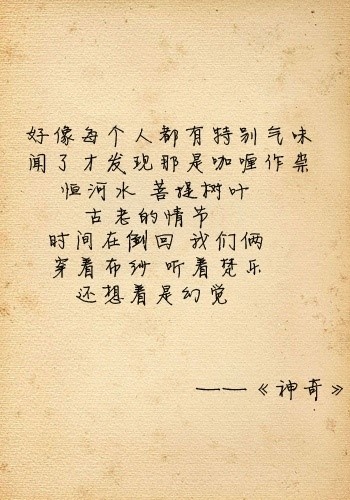 好像每个人都有特别气味
闻了才发现那是咖喱作祟
恒河水 菩提树叶
古老的情节
时间在倒回 我们俩
穿着布纱 听着梵乐
还想着是幻觉
——《神奇》